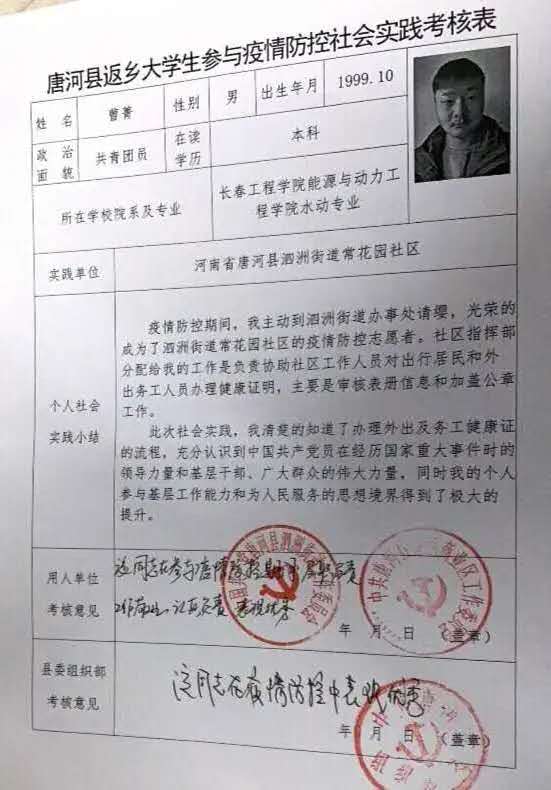 唐河县返乡大学生参与疫情防控社会实践考核表
姓 名 曹菁 性别 男 出生年月 1999.10
政 治 面 貌 共青团员 在读学历 本科
所在学校院系及专业 长春工程学院能源与动力工
程学院水动专业
实践单位 河南省唐河县泗洲街道常花园社区
个人社会
实践小结
疫情防控期间，我主动到泗洲街道办事处请缨，光荣的
成为了泗洲街道常花园社区的疫情防控志愿者。社区指挥部
分配给我的工作是负责协助社区工作人员对出行居民和外
出务工人员办理健康证明，主要是审核表册信息和加盖公章
工作。
此次社会实践，我清楚的知道了办理外出及务工健康证
的流程，充分认识到中国共产党员在经历国家重大事件时的
领导力量和基层干部、广大群众的伟大力量，同时我的个人
参与基层工作能力和为人民服务的思想境界得到了极大的
提升。
用人单位
考核意见
该同志在参与疫情防控期间
认真负责 表现优秀
年 月 日 （盖章）
县委组织部
考核意见
该同志在疫情防控中表现优秀
年 月 日 （盖章）